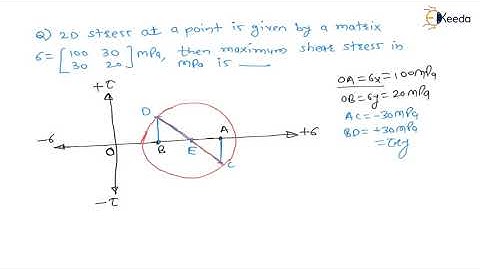 Ekeeda
Q) 2D stress at a point is given by a matrix
σ = [100 30
30 20] MPa, then maximum shear stress in
MPa is ___
OA = σx = 100MPa
OB = σy = 20MPa
AC = -30MPa
BD = +30MPa
= τxy
+τ
D
A
-σ
O
B
E
+σ
C
-τ